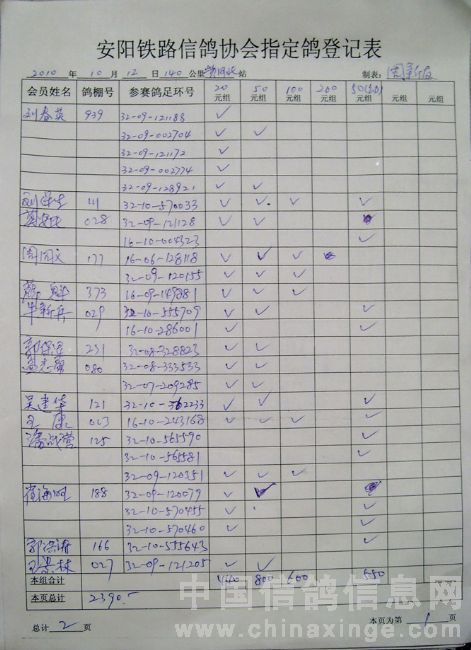 安阳铁路信鸽协会指定鸽登记表
2010 年 10 月 12 日 140 公里 站 制表:
会员姓名 鸽棚号 参赛鸽足环号 20元组 50元组 100元组 200元组 50(50)元组 元组 元组
刘春英 939 32-09-121188 ✓
32-09-002704 ✓ ✓
32-09-121172 ✓
32-09-002774 ✓
32-09-128921 ✓ ✓
111 32-10-570033 ✓ ✓ ✓ ✓
028 32-09-121128 ✓ ✓
16-10-004323 ✓
周同文 177 16-06-128118 ✓ ✓ ✓
32-09-120155 ✓ ✓ ✓
373 16-09-149281 ✓ ✓
牛新丹 029 32-10-555709 ✓ ✓ ✓
16-10-286001 ✓ ✓
231 32-08-328823 ✓ ✓
080 32-08-333533 ✓ ✓
32-07-209285 ✓ ✓
吴建华 121 32-10-362233 ✓ ✓ ✓
王康 003 16-10-243168 ✓ ✓ ✓
125 32-10-565590 ✓
32-10-565581 ✓
32-09-120351 ✓ ✓ ✓
188 32-09-120079 ✓ ✓
32-10-570455 ✓ ✓
32-10-570460 ✓ ✓
郭洪涛 166 32-10-555643 ✓
027 32-09-121205 ✓ ✓ ✓
本组合计 800 600 550
本页总计 2390.-
总计 2 页 本页为第 1 页
中国信鸽信息网
www.chinaxinge.com